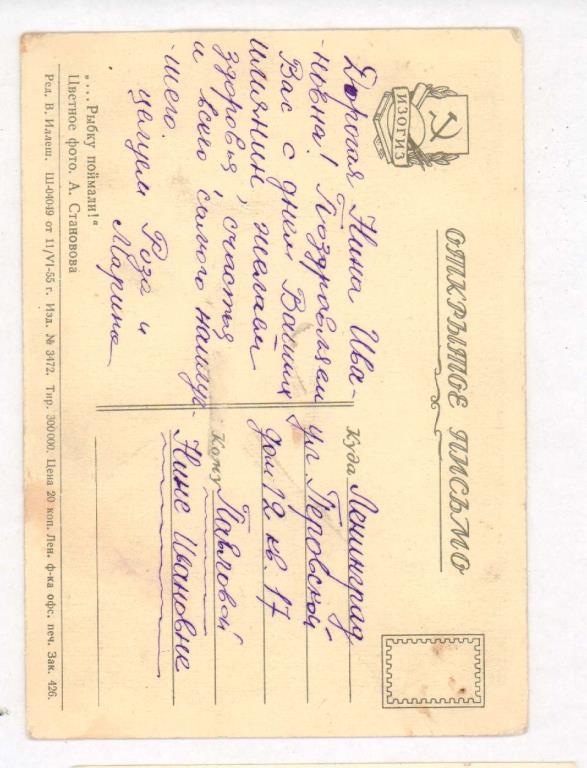 ИЗОГИЗ
ОТКРЫТОЕ ПИСЬМО
Дорогая Нина Ива-
новна! Поздравляем
Вас с днем Ваших
имянин, желаем
здоровья, счастья
и всего самого наилуч-
шего.
целуем Роза и
Марина
Куда Ленинград
ул. Перовской
дом 12 кв. 17
Кому Павловой
Нине Ивановне
„...Рыбку поймали!“
Цветное фото. А. Становова
Ред. В. Иллеш. Ш-04049 от 11/VI-55 г. Изд. № 3472. Тир. 300000. Цена 20 коп. Лен. ф-ка офс. печ. Зак. 426.